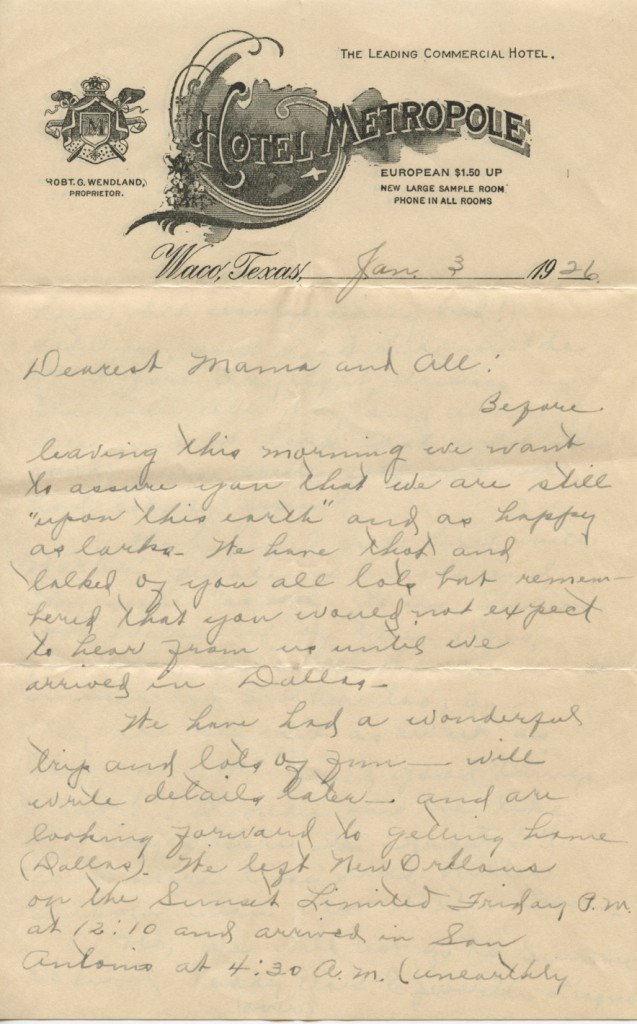 THE LEADING COMMERCIAL HOTEL.
HOTEL METROPOLE
M
ROBT. G. WENDLAND,
PROPRIETOR.
EUROPEAN $1.50 UP
NEW LARGE SAMPLE ROOM
PHONE IN ALL ROOMS
Waco, Texas, Jan. 3 1926
Dearest Mama and All:
Before
leaving this morning we want
to assure you that we are still
"upon this earth" and as happy
as larks. We have that and
talked of you all lots but remem-
bered that you would not expect
to hear from us until we
arrived in Dallas—
We have had a wonderful
trip and lots of fun — will
write details later — and are
looking forward to getting home
(Dallas). We left New Orleans
on the Sunset Limited Friday P.M.
at 12:10 and arrived in San
Antonio at 4:30 A.M. (unearthly